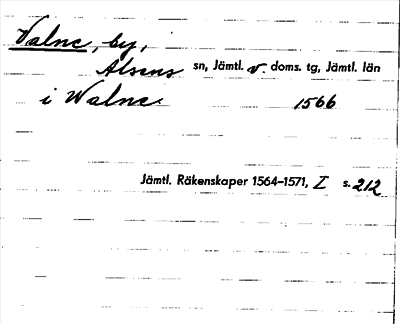 Valne, by,
Alsens sn, Jämtl. v. doms. tg, Jämtl. län
i Walne 1566
Jämtl. Räkenskaper 1564–1571, I s. 212